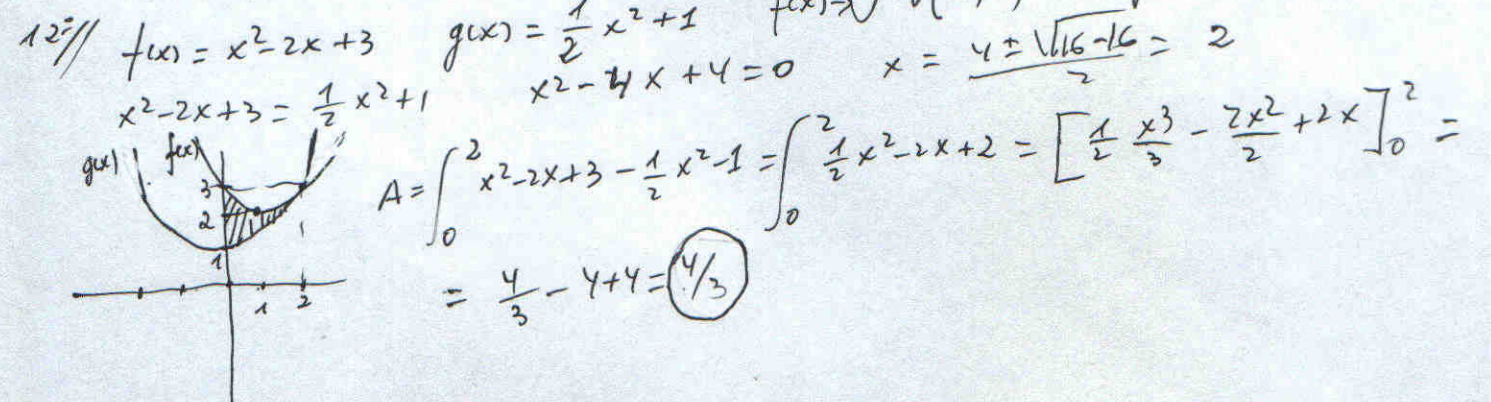 12º// f(x) = x² - 2x + 3   g(x) = 1/2 x² + 1
x² - 2x + 3 = 1/2 x² + 1   x² - 4x + 4 = 0   x = (4 ± √(16 - 16))/2 = 2
g(x) f(x)
3
2
1
1 2
A = ∫₀² x² - 2x + 3 - 1/2 x² - 1 = ∫₀² 1/2 x² - 2x + 2 = [1/2 x³/3 - 2x²/2 + 2x]₀² =
= 4/3 - 4 + 4 = 4/3